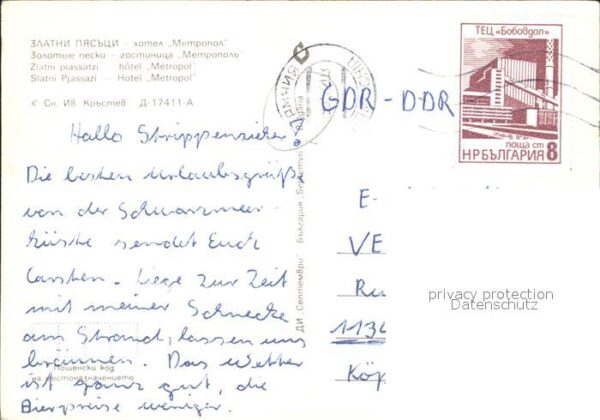 ЗЛАТНИ ПЯСЪЦИ - хотел „Метропол"
Золотые пески - гостиница „Метрополь"
Zlatni piassatzi - hôtel „Métropol"
Slatni Pjassazi - Hotel „Metropol"
с Сн. Ив. Кръстев Д-17411-А
ТЕЦ „Бобовдол"
поща ст
НР БЪЛГАРИЯ 8
GDR - DDR
Hallo Strippenzieher
Die besten Urlaubsgrüße
von der Schwarzmeer-
küste sendet Euch
Carsten. Liege zur Zeit
mit meiner Schnecke
am Strand, lassen uns
bräunen. Das Wetter
ist ganz gut, die
Bierpreise weniger.
Пощенски код
на местоназначението
ДИ „Септември" България
E-
VE
Ru
1134
Köp
privacy protection
Datenschutz